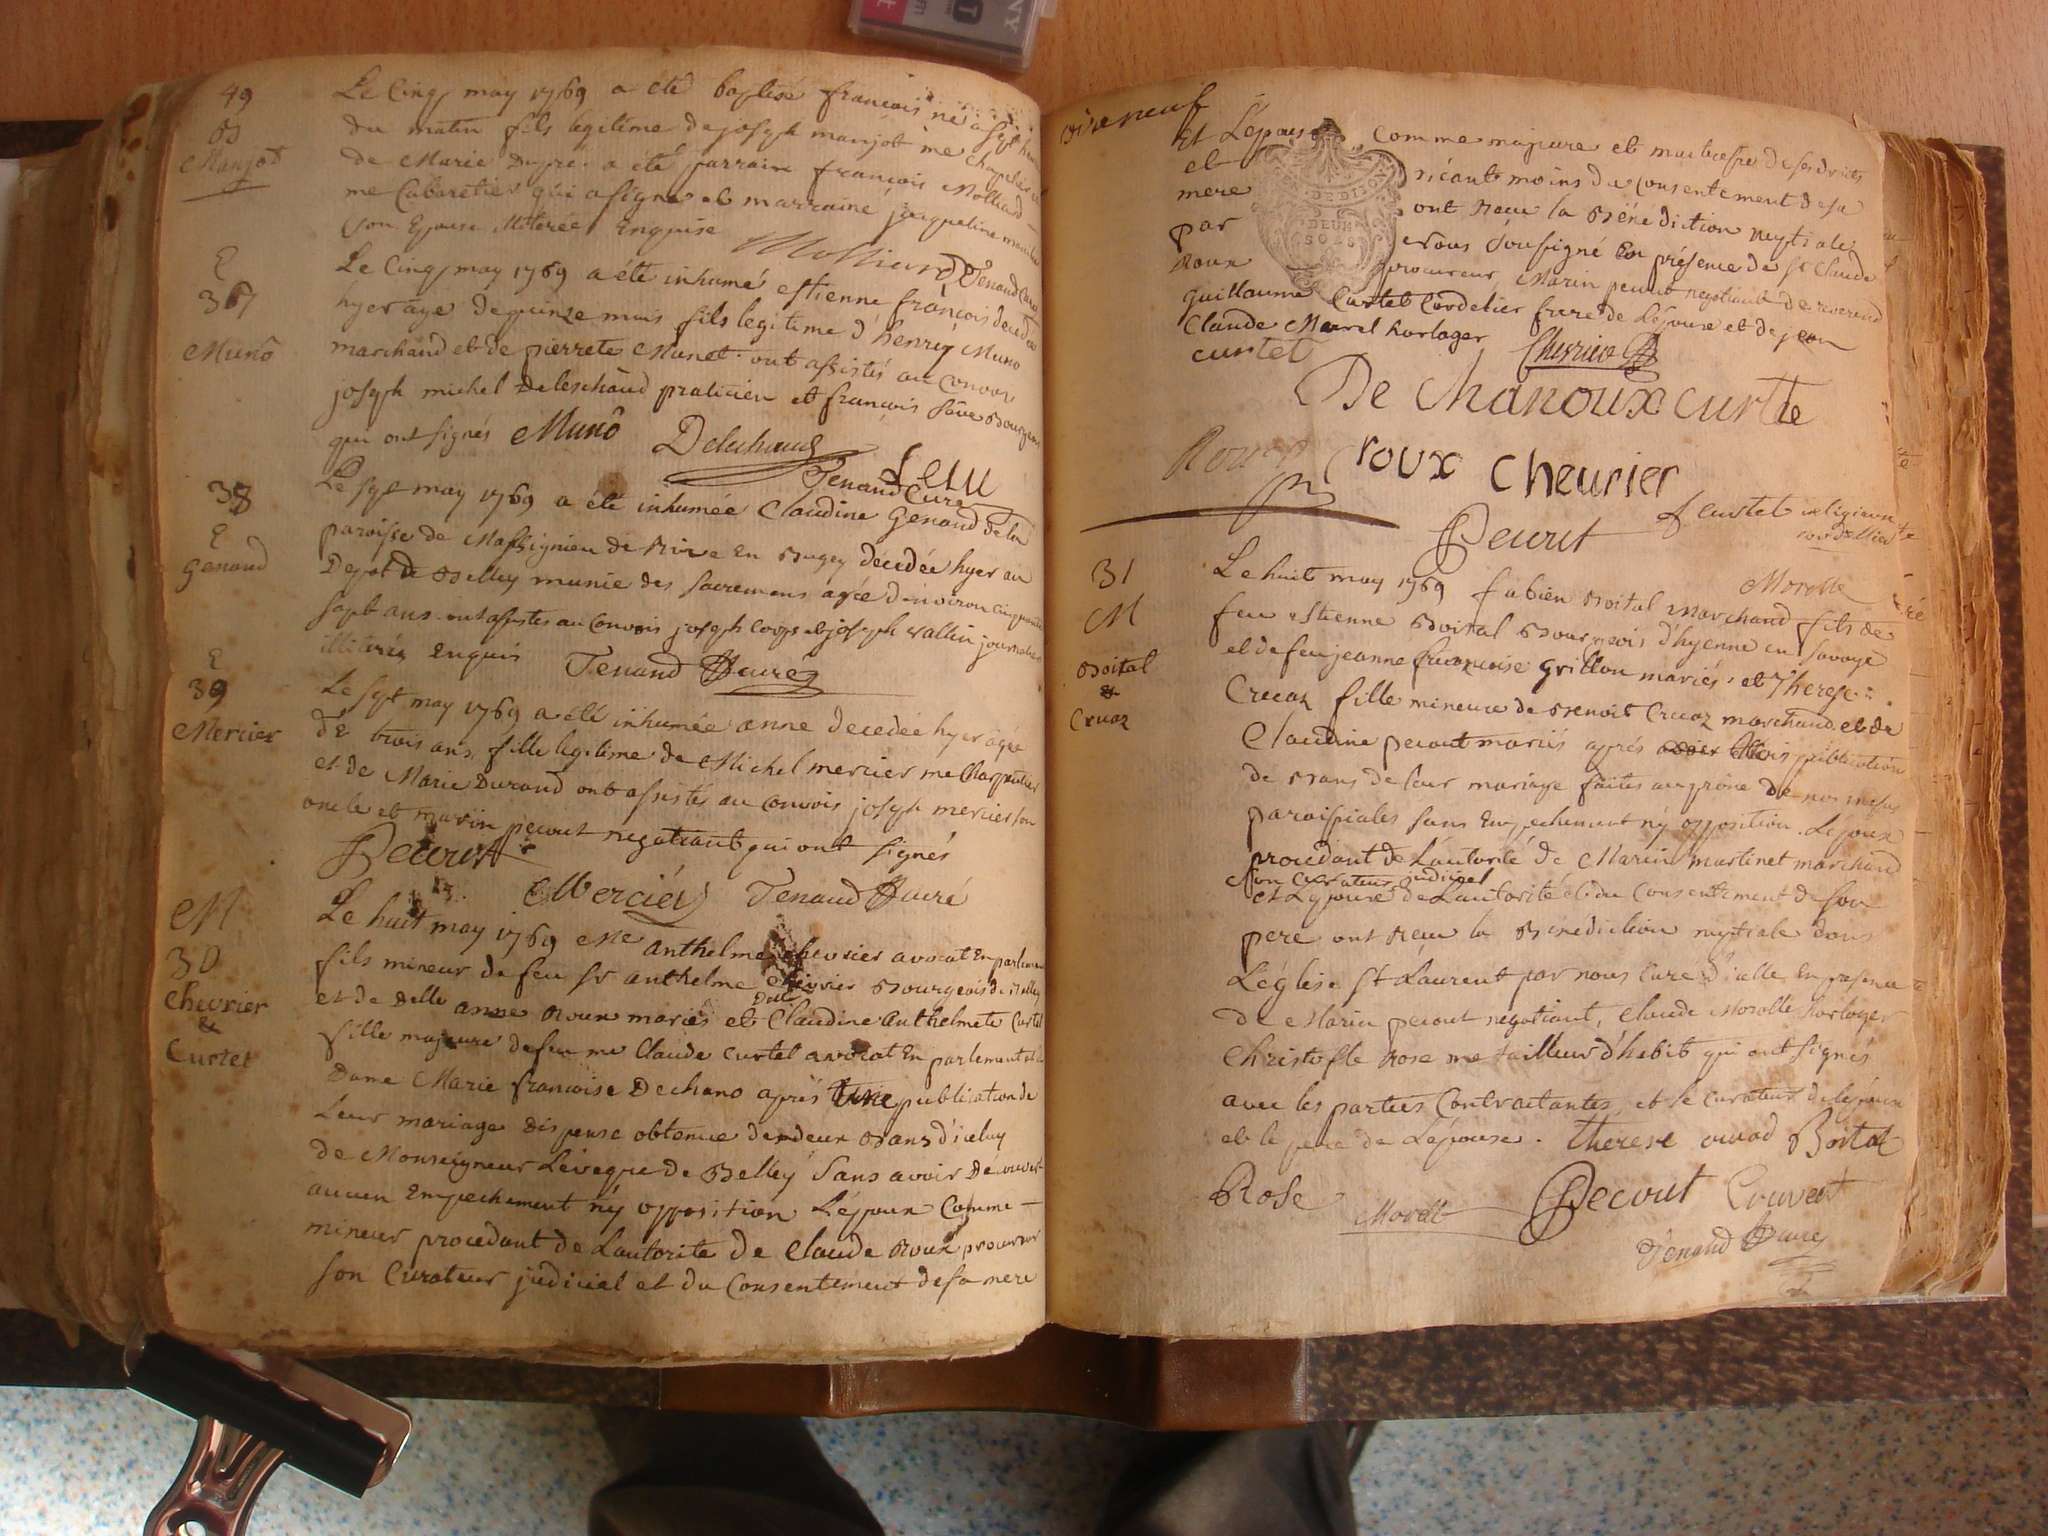 49
B
Manjot
Le Cinq may 1769 a été baptisé françois né a sept heures
du matin fils legitime de joseph manjot me chapelier et
de Marie Dupré. a été parrain françois Molliard
me Cabaretier qui a signé et marraine jacqueline
son Epouse illiterée Enquise
Molliard Tenand Curé
E
37
Muno
Le Cinq may 1769 a été inhumé estienne françois decedé
hyer agé de quinze mois fils legitime d'henry Muno
marchand et de pierrete Munet. ont assistés au convoy
joseph michel Deleschaud praticien et françois Bourgeois
qui ont signés Muno
Deleschaud
Tenand Curé
38
E
Genaud
Le sept may 1769 a été inhumée Claudine Genaud de la
paroisse de Massignieu de Rive En Bugey décedée hyer au
Depot de Belley munie des sacremens agée d'environ cinquante
sept ans. ont assistés au Convois joseph et joseph vallin journaliers
illiterés Enquis Tenand Curé
E
39
Mercier
Le sept may 1769 a été inhumée anne decedée hyer agée
de trois ans, fille legitime de Michel mercier me Charpentier
et de Marie Durand ont assistés au Convois joseph mercier son
oncle et marin pecout negotiant qui ont signés
Pecout
Mercier Tenand Curé
M
30
Chevrier
&
Curtet
Le huit may 1769 Me anthelme chevrier avocat En parlement
fils mineur de feu sr anthelme chevrier Bourgeois de Belley
et de Delle anne Roux mariés et Delle Claudine anthelmete Curtet
fille majeure de feu me Claude Curtet avocat En parlement et de
Dame Marie françoise Dechano aprés une publication de
Leur mariage dispense obtenue de deux Bans d'iceluy
de Monseigneur L'eveque de Belley sans avoir Découvert
aucun Empechement ny opposition L'époux Comme
mineur procedant de L'autorite de Claude Roux procureur
son Curateur judiciel et du Consentement de sa mere
Et L'epouse comme majeure et maitresse de ses droits
et moins du consentement de sa
mere ont Reçu la Bénédiction nuptiale
par nous Soussigné En présence de sr Claude
Roux procureur, Marin pecout negotiant de reverend
guillaume Curtet Cordelier frere de L'epouse et de jean
Claude Morel horloger Chevrier
curtet
De Chanoux curtte
Roux roux Chevrier
Pecout f Curtet religieux
cordellier
Morelle
31
M
Boital
&
Cruaz
Le huit may 1769 fabien Boital marchand fils de
feu estienne Boital Bourgeois d'hyenne en Savoye
et de feu jeanne françoise Grillon mariés. et Therese
Cruaz fille mineure de Benoit Cruaz marchand et de
Claudine pecout mariés aprés trois publications
de Bans de leur mariage faites au prône de nos messes
paroissiales sans Empechement ny opposition. L'epoux
procedant de L'autorité de Marin martinet marchand
son curateur judiciel
et L'epouse de L'autorité et du Consentement de son
pere ont Reçu la Bénédiction nuptiale dans
L'église St Laurent par nous Curé d'icelle En presence
de Marin pecout negotiant, Claude Morelle horloger
Christofle Rose me tailleur d'habit qui ont signés
avec les parties Contractantes, et le curateur de l'époux
et le pere de L'épouse. therese Boital
Rose Morelle Pecout
Tenand Curé